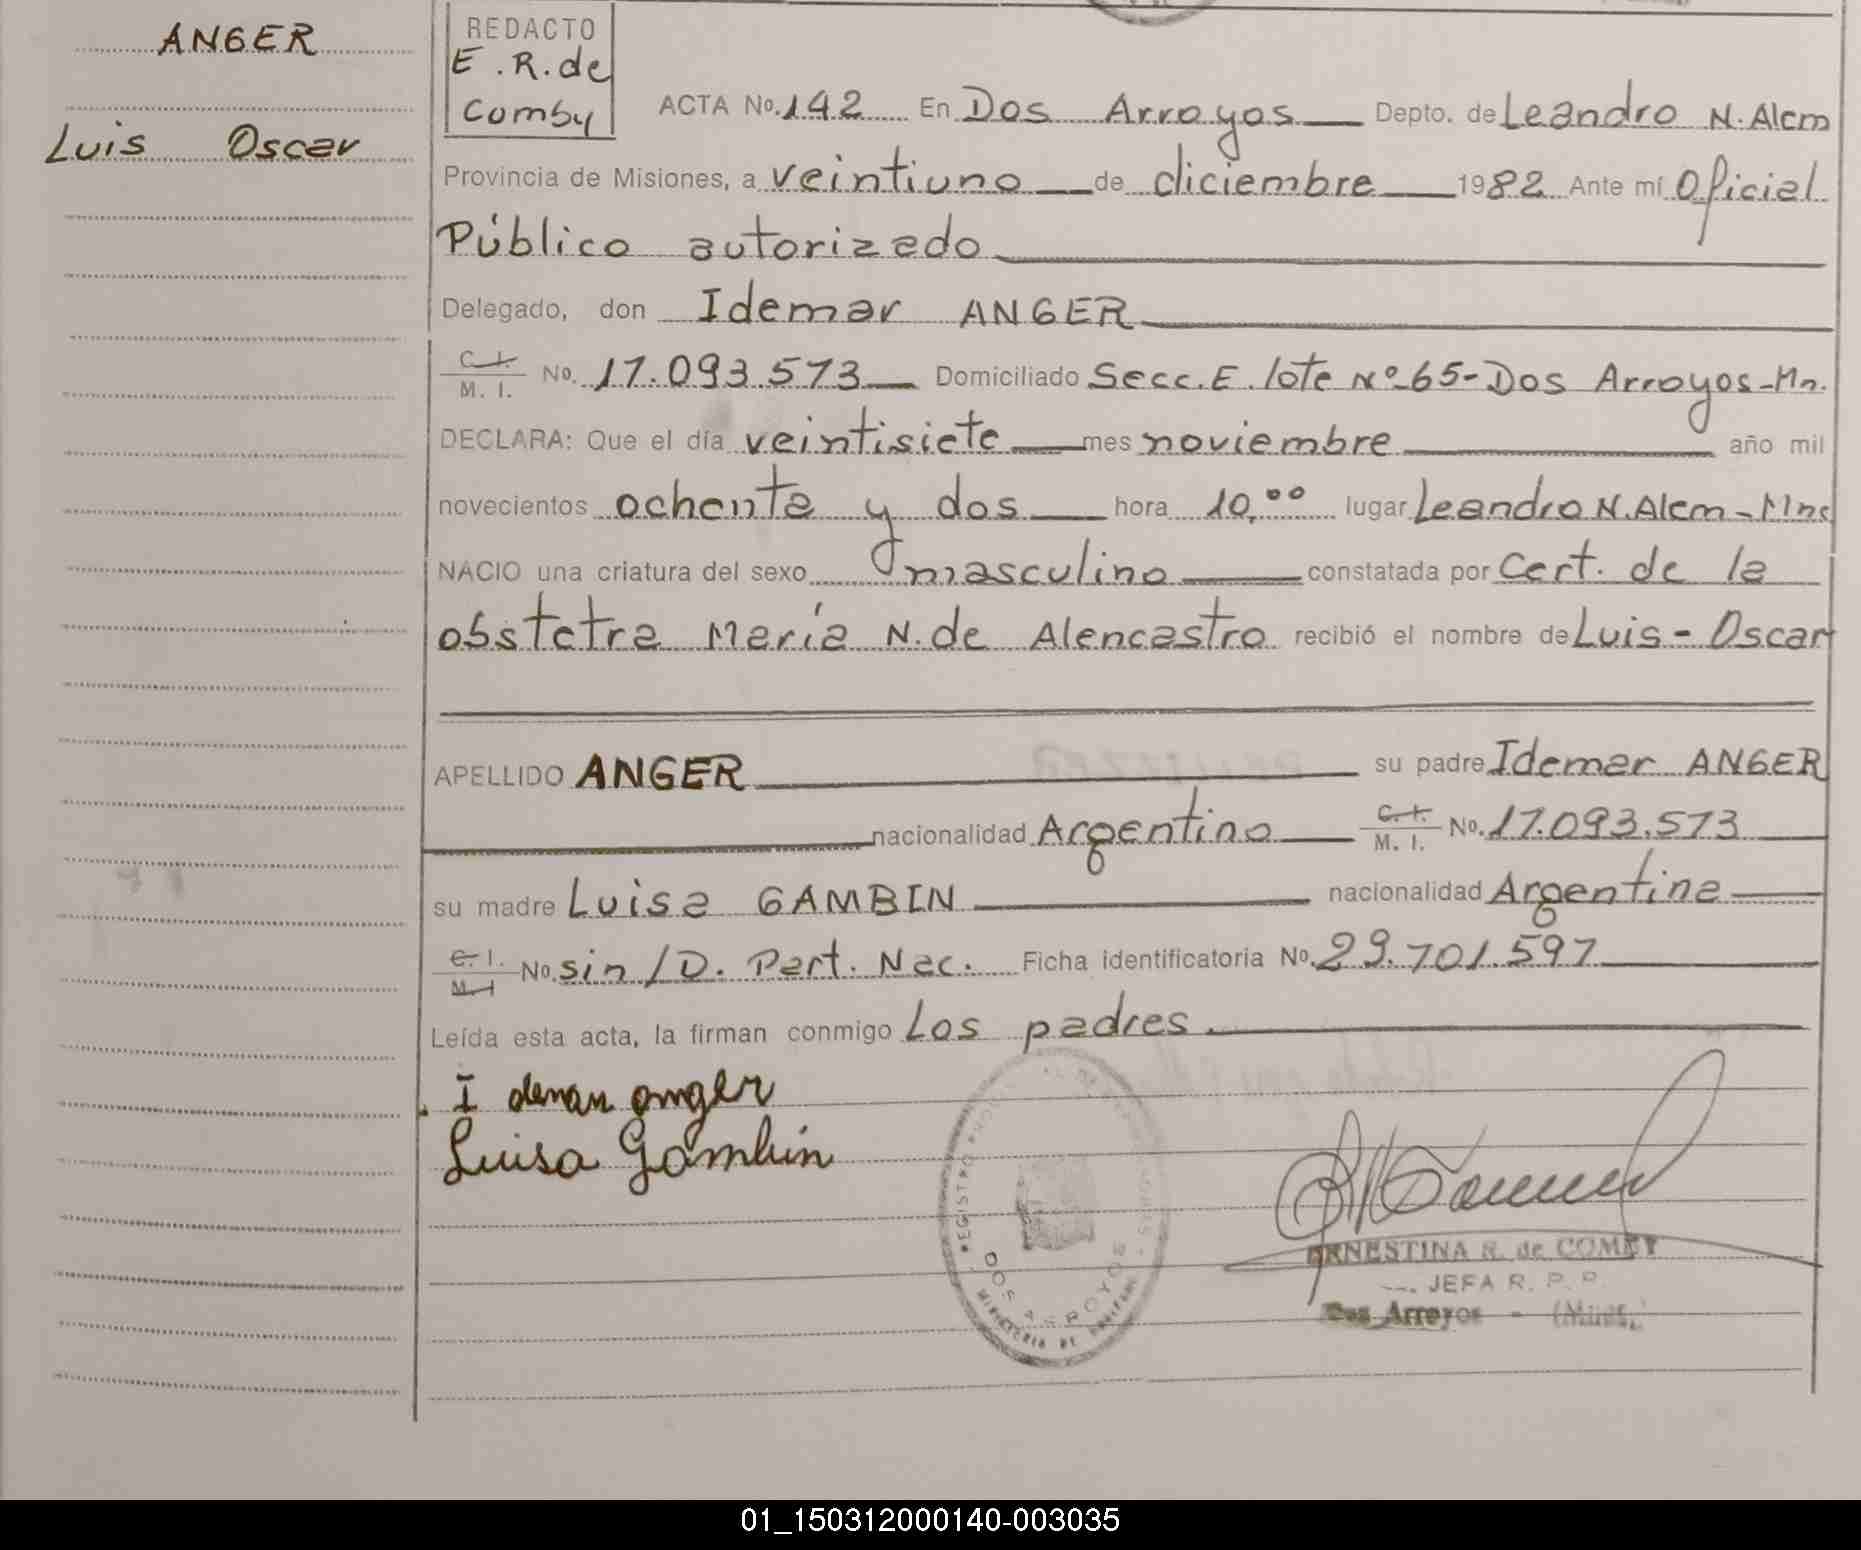 ANGER
Luis Oscar
REDACTO
E.R. de
Comby
ACTA No. 142 En Dos Arroyos Depto. de Leandro N. Alem
Provincia de Misiones, a veintiuno de diciembre 1982 Ante mí Oficial
Público autorizado
Delegado, don Idemar ANGER
C. I. / M. I. No. 17.093.573 Domiciliado Secc. E. lote Nº 65-Dos Arroyos-Mn.
DECLARA: Que el día veintisiete mes noviembre año mil
novecientos ochenta y dos hora 10,00 lugar Leandro N. Alem-Mns
NACIO una criatura del sexo masculino constatada por Cert. de la
obstetra María N. de Alencastro recibió el nombre de Luis-Oscar
APELLIDO ANGER su padre Idemar ANGER
nacionalidad Argentino C. I. / M. I. No. 17.093.573
su madre Luisa GAMBIN nacionalidad Argentina
C. I. / M. I. No. sin/D. Part. Nac. Ficha identificatoria No. 29.701.597
Leída esta acta, la firman conmigo Los padres.
Idemar anger
Luisa Gambin
REGISTRO
DOS ARROYOS
ERNESTINA R. de COMBY
JEFA R. P. P.
Dos Arroyos - (Mnes.)
01_150312000140-003035